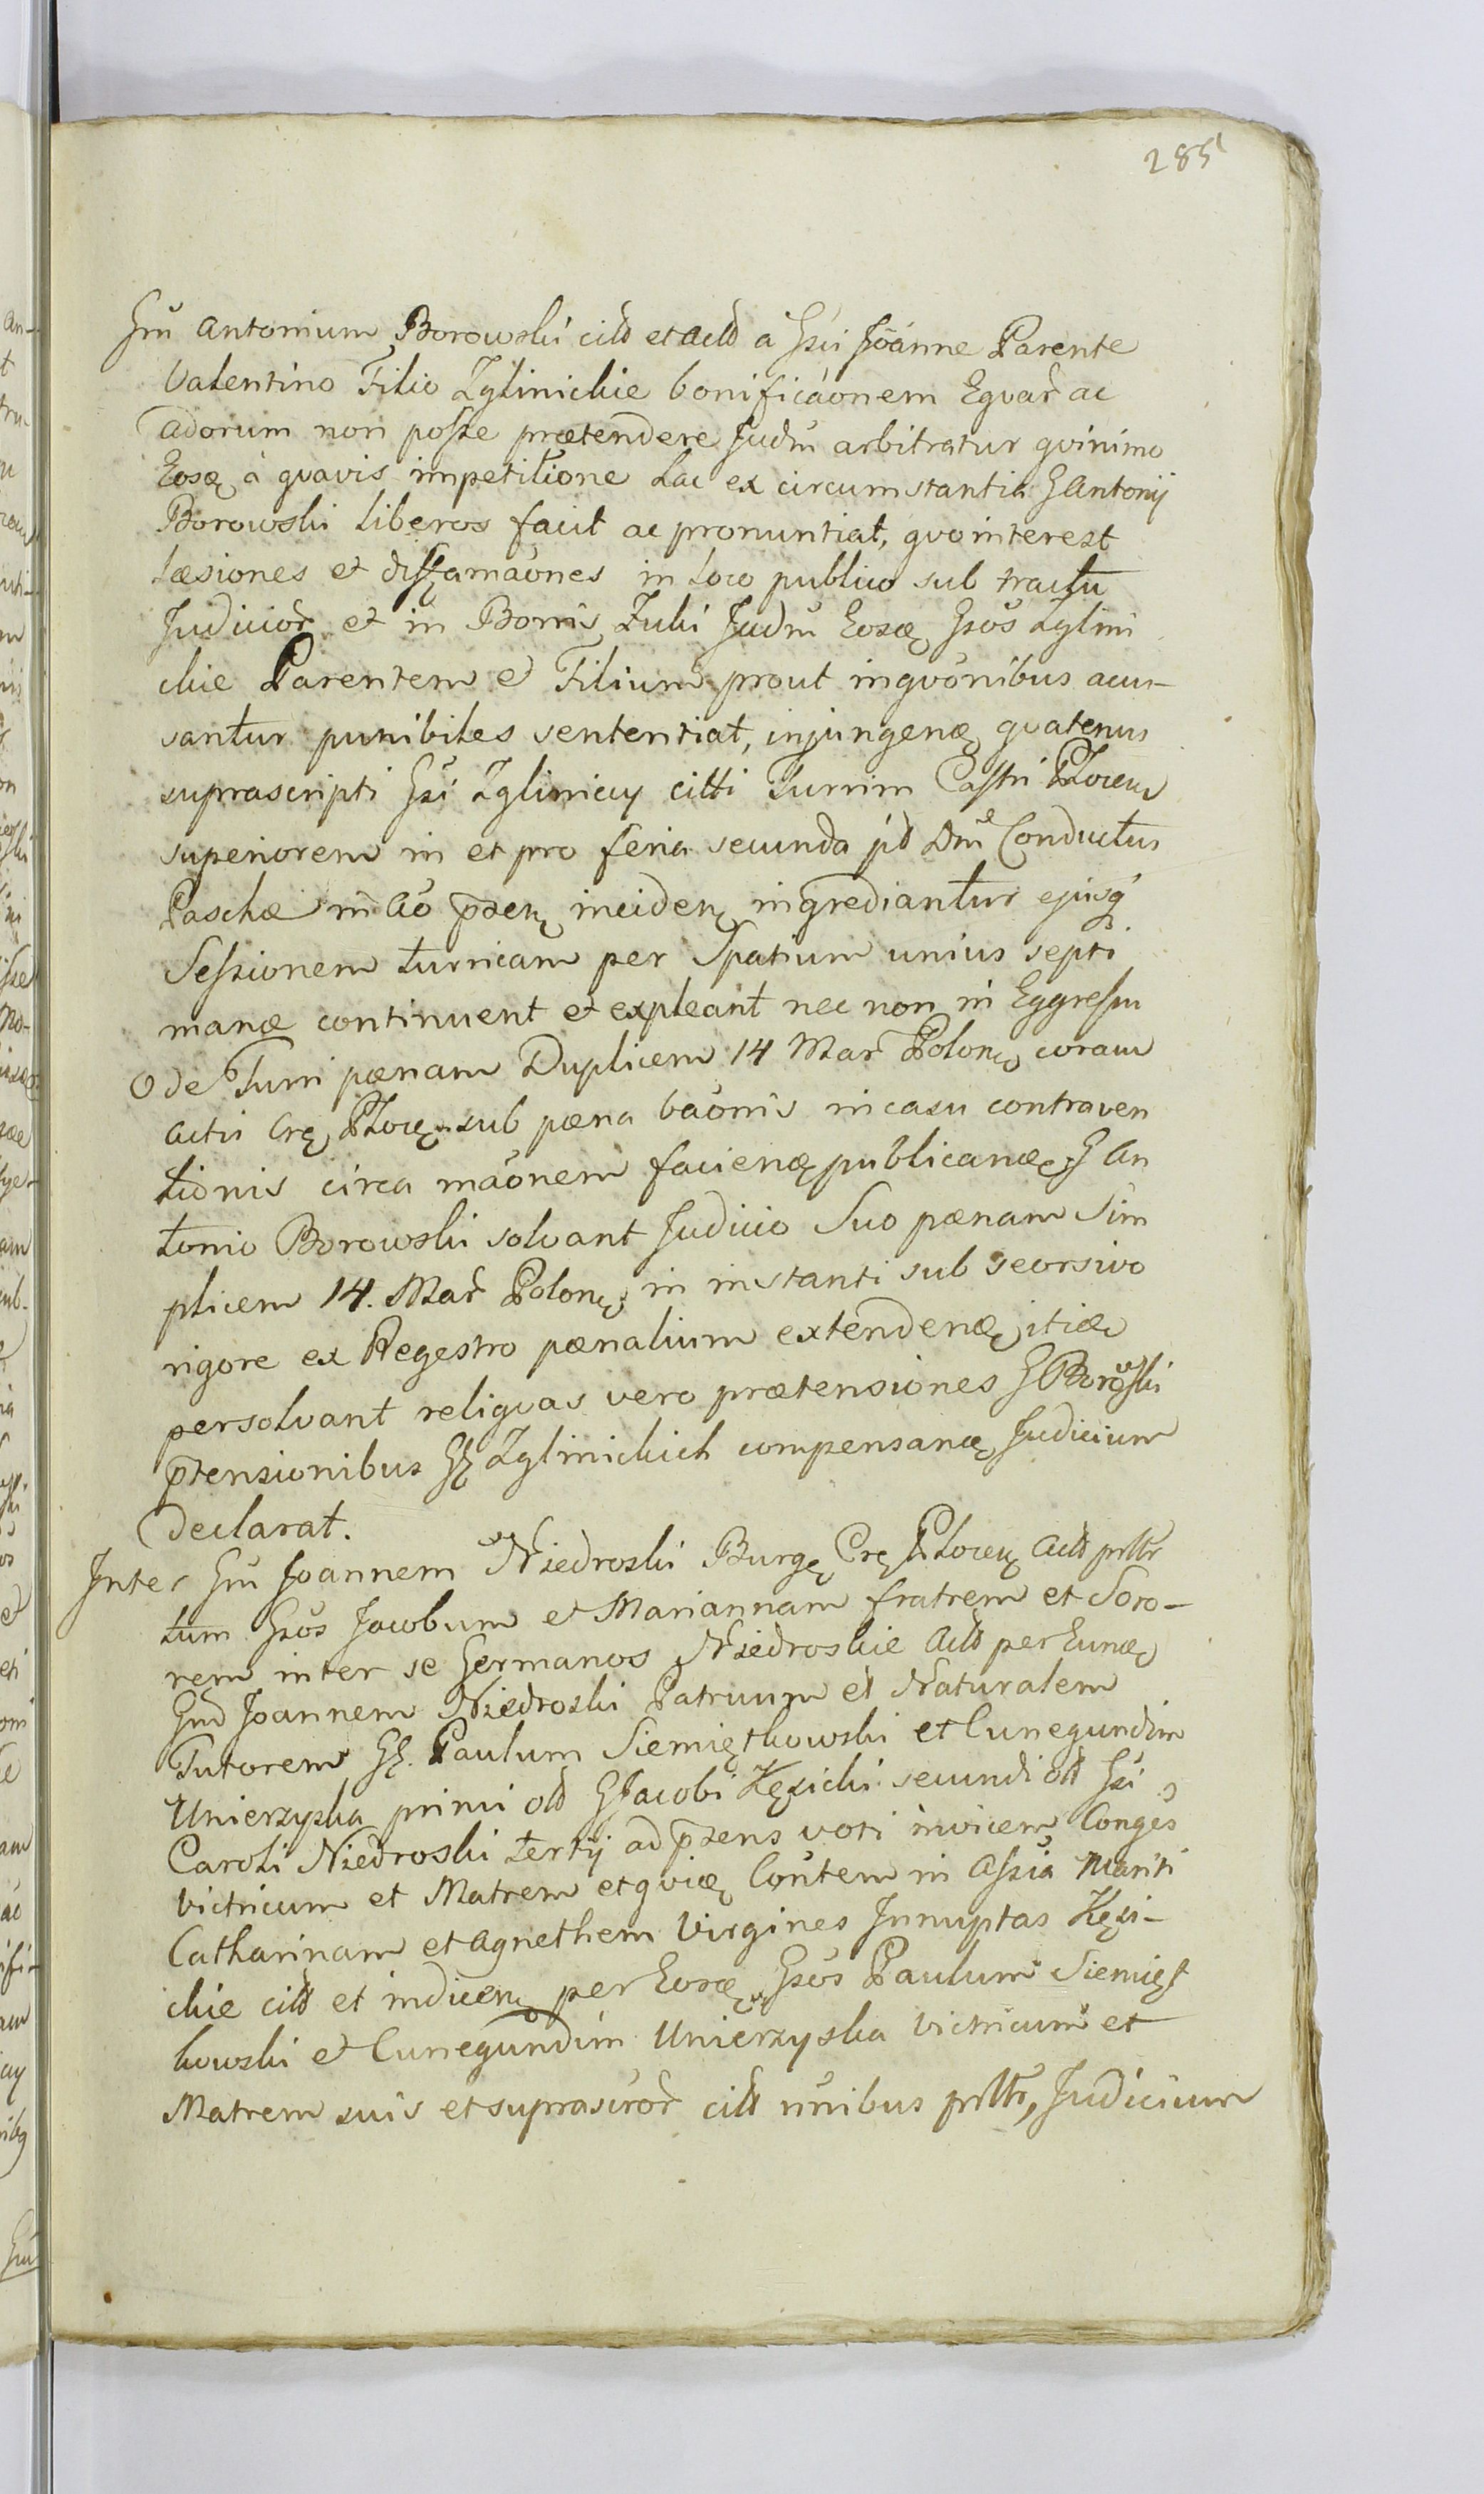 285
Gnu Antonium Borowski citt et actt a Gsii Joanne Parente
Valentino Filio Zglinickie bonificaonem Eqvar ac
adorum non posse prætendere Judm arbitratur qvinimo
Eosq a qvavis impetitione hac ex circumstantia G Antonij
Borowski liberos facit ac pronuntiat, qvo interest
læsiones et diffamaones in Loco publico sub tractu
Judicior et in Bonis Zuki Judm Eosq Gsos Zglini
ckie Parentem et Filium prout inqvonibus accu-
santur punibiles sententiat, injungenq qvatenus
suprascripti Gsi Zgliniccy citti Turrim Castri Plocen
superiorem in et pro feria secunda pd Dm Conductus
Paschæ in Ao præsen inciden ingrediantur ejusq
Sessionem turricam per Spatium unius septi
manæ continuent et expleant nec non in Eggressu
de Turri pænam Duplicem 14 Mar Polon coram
actis Cre Plocen sub pæna baonis in casu contraven
tionis circa maonem facienq publicanq G An
tonio Borowski solvant Judicio Suo pænam Sim
plicem 14. Mar Polon in instanti sub seorsivo
rigore ex Regestro pænalium extendenq itiq
persolvant reliqvas vero prætensiones G Borowski
ptensionibus GG Zglinickich compensanq Judicium
declarat.
Inter Gnu Joannem Niedroski Burg Cre Plocen actt prltr
tum Gsos Jacobum et Mariannam fratrem et Soro-
rem inter se Germanos Niedroskie actt per Eunq
Gnu Joannem Niedroski Patruum et Naturalem
Tutorem GG. Paulum Siemiętkowski et Cunegundim
Unierzyska primi olt G Jacobi Kęsicki secundi olt Gsi
Caroli Niedroski tertij ad præsens voti invicem Conges
Victricum et Matrem etqviq Contem in Assia Mariti
Catharinam et Agnethem Virgines Innuptas Kęsi-
ckie citt et indicen per Eosq Gsos Paulum Siemięt
kowski et Cunegundim Unierzyska Victricum et
Matrem suis et suprascror citt nnibus prltr, Judicium